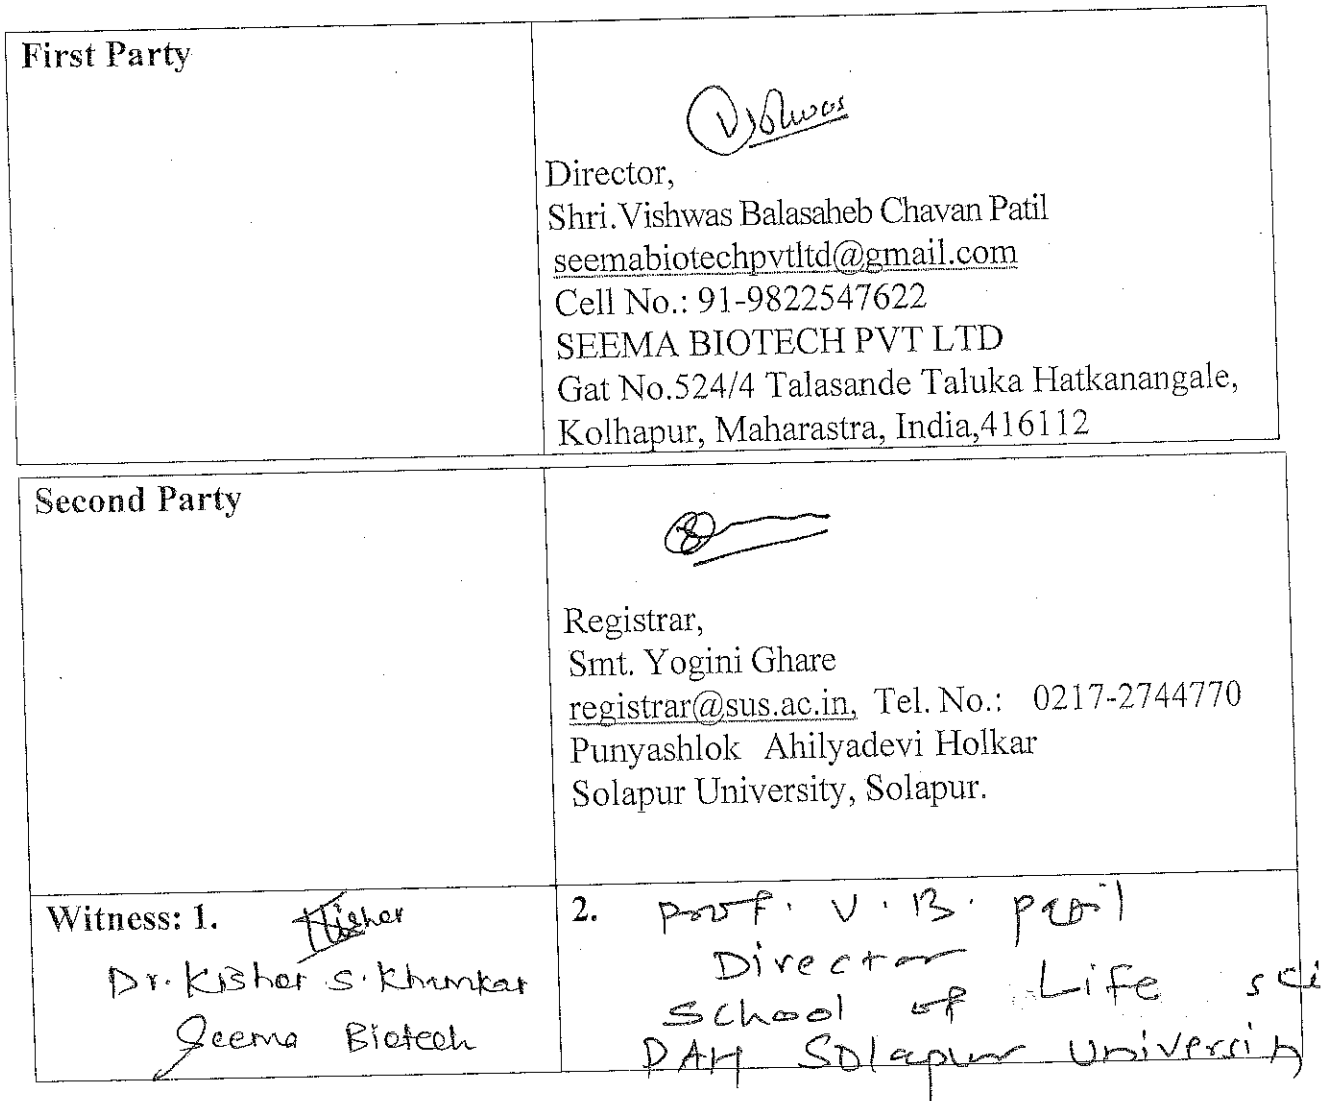 First Party
Vishwas
Director,
Shri.Vishwas Balasaheb Chavan Patil
seemabiotechpvtltd@gmail.com
Cell No.: 91-9822547622
SEEMA BIOTECH PVT LTD
Gat No.524/4 Talasande Taluka Hatkanangale,
Kolhapur, Maharastra, India,416112
Second Party
Registrar,
Smt. Yogini Ghare
registrar@sus.ac.in, Tel. No.: 0217-2744770
Punyashlok Ahilyadevi Holkar
Solapur University, Solapur.
Witness: 1. Kishor
Dr. Kishor S. Khumkar
Seema Biotech
2. Prof. V. B. Patil
Director
School of Life sci
PAH Solapur University